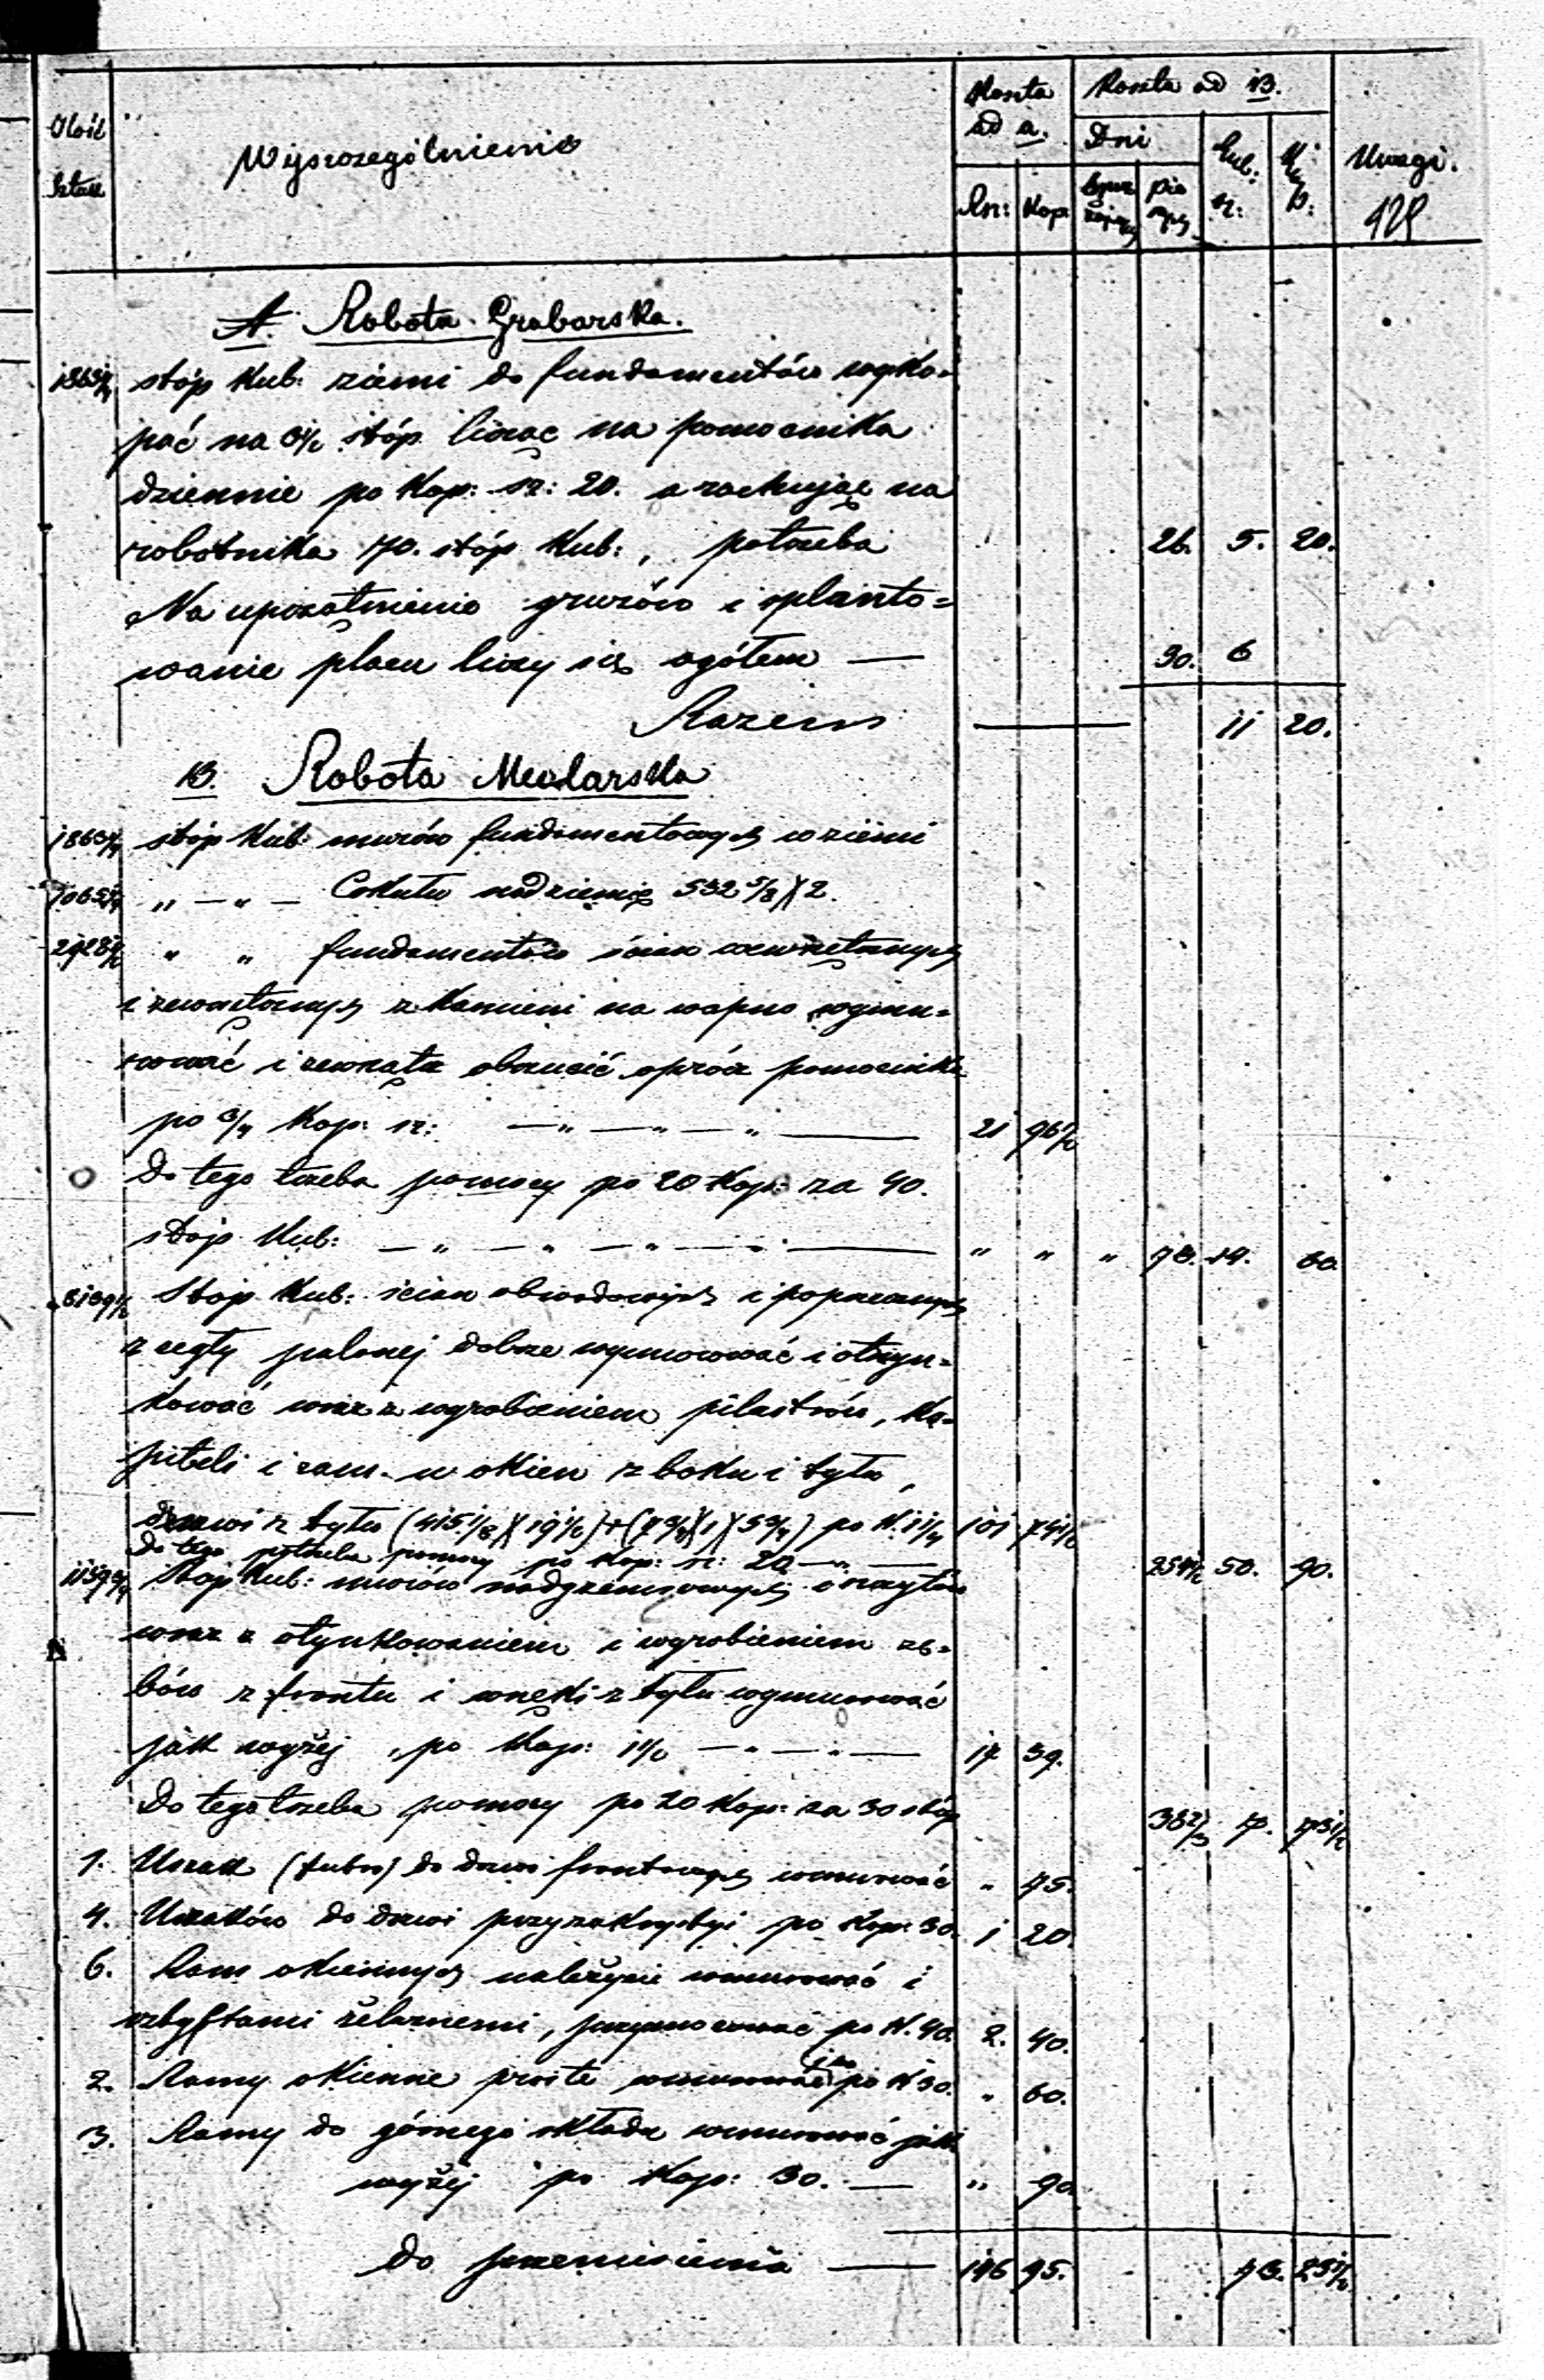 Ilość sztuk
Wyszczególnienie
Koszta ad a.
Koszta ad B.
Dni
Rsr: Kop
pie
Rub: sr:
Kop:
Uwagi.
A. Robota Grabarska.
1863¼ stóp kub: ziemi do fundamentów wyko=
pać na 3½ stóp licząc na pomocnika
dziennie po kop: sr: 20. a rachując na
robotnika 70. stóp kub:, potrzeba 26. 5. 20.
Na uprzątnienie gruzów i splanto=
wanie placu liczy się ogółem — 30. 6
Razem — 11 20.
B. Robota Mularska
1863¼ stóp kub: murów fundamentowych w ziemi
1065¼ „ — „ — Cokułu nadziemię 532 5/8 )( 2.
2928½ „ „ fundamentów ścian wewnętrznych
i zewnętrznych z kamieni na wapno wymu=
rować i zewnątz obrzucić oprócz pomocnika
po ¾ kop: sr: — „ — „ — „ — 21 96½
Do tego trzeba pomocy po 20 kop: za 40.
stóp kub: — „ — „ — „ — „ — „ „ „ 73. 14. 60.
8139½ Stóp kub: ścian obwodowych i poprzecznych
z cegły palonej dobrze wymurować i otyn=
kować wraz z wyrobieniem pilastrów, ka=
piteli i ram u okien z boku i tyłu,
drzwi z tyłu (415⅛)(19½)+(7¾)(1)(5¾) po k. 1¼ 101 74½
Do tego potrzeba pomocy po kop: sr: 20 — „ — 254½ 50. 90.
1159¾ Stóp kub: murów nadgzemsowych i szczytów
wraz z otynkowaniem i wyrobieniem zę=
bów z frontu i wnęki z tyłu wymurować
jak wyżej „po kop: 1½ — „ — „ — 17 39.
Do tego trzeba pomocy po 20 kop: za 30 stóp 38⅔ 7. 73½
1. Uszak (futro) do drzwi frontowych wmurować „ 75.
4. Uszaków do drzwi przy zakrystyi po kop: 30. 1 20.
6. Ram okiennych należycie wmurować i
sztyftami żelaznemi, przymocować po k. 40. 2. 40.
2. Ramy okienne proste wmurować po k 30. „ 60.
3. Ramy do górnego składu wmurować jak
wyżej po kop: 30. — „ 90.
do przeniesienia — 146 95. 73. 23½